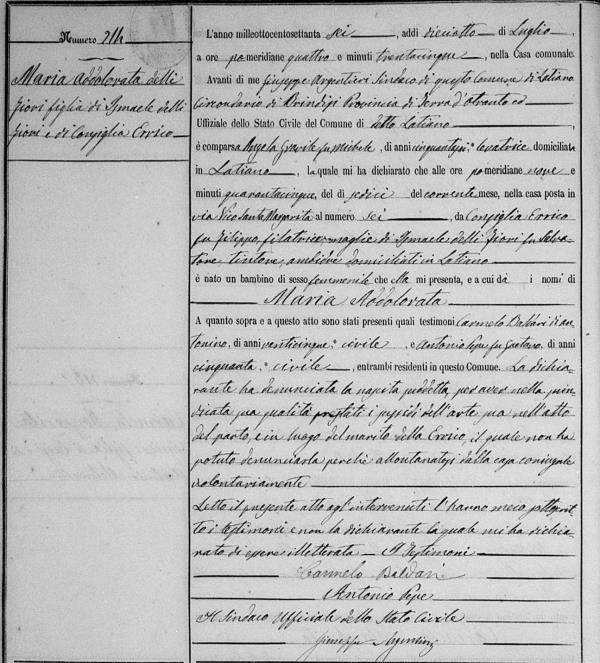 Numero 214
Maria Addolorata delli
Fiori figlia di Ismaele delli
Fiori e di Consiglia Errico
L'anno milleottocentosettanta sei, addì dieciotto di Luglio,
a ore pomeridiane quattro e minuti trentacinque, nella Casa comunale.
Avanti di me Giuseppe Argentieri Sindaco di questo Comune di Latiano
Circondario di Brindisi Provincia di Terra d'Otranto ed
Uffiziale dello Stato Civile del Comune di detto Latiano,
è comparsa Angela fu Michele, di anni cinquantasei, levatrice domiciliata
in Latiano, la quale mi ha dichiarato che alle ore pomeridiane nove e
minuti quarantacinque, del dì sedici del corrente mese, nella casa posta in
via Vico Santa Margarita al numero sei, da Consiglia Errico
fu Filippo, filatrice, moglie di Ismaele delli Fiori fu Salva-
tore, tintore, ambidue domiciliati in Latiano
è nato un bambino di sesso femmenile che ella mi presenta, e a cui dà i nomi di
Maria Addolorata
A quanto sopra e a questo atto sono stati presenti quali testimoni Carmelo Baldari di An-
tonino, di anni venticinque, civile, e Antonio Pepe fu Gaetano, di anni
cinquanta, civile, entrambi residenti in questo Comune. La dichia-
rante ha denunciata la nascita suddetta, per aver nella pin-
dicata sua qualità prestati i sussidi dell'arte sua nell'atto
del parto, e in luogo del marito della Errico, il quale non ha
potuto denunciarla perchè allontanatosi dalla casa coniugale
volontariamente
Letto il presente atto agl'intervenuti l'hanno meco sottoscrit-
to i testimoni e non la dichiarante la quale mi ha dichia-
rato di essere illetterata — I Testimoni
Carmelo Baldari
Antonio Pepe
Il Sindaco Uffiziale dello Stato Civile
Giuseppe Argentieri